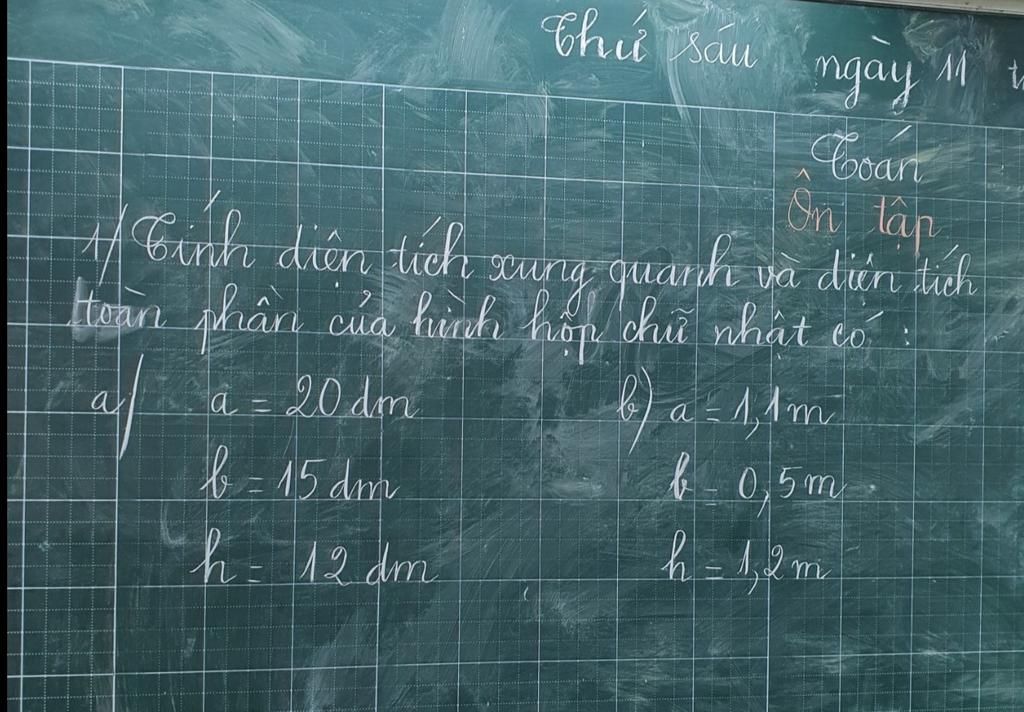 Thứ sáu ngày 11
Toán
Ôn tập
1/ Tính diện tích xung quanh và diện tích
toàn phần của hình hộp chữ nhật có :
a/ a = 20 dm b) a = 1,1 m
b = 15 dm b = 0,5 m
h = 12 dm h = 1,2 m